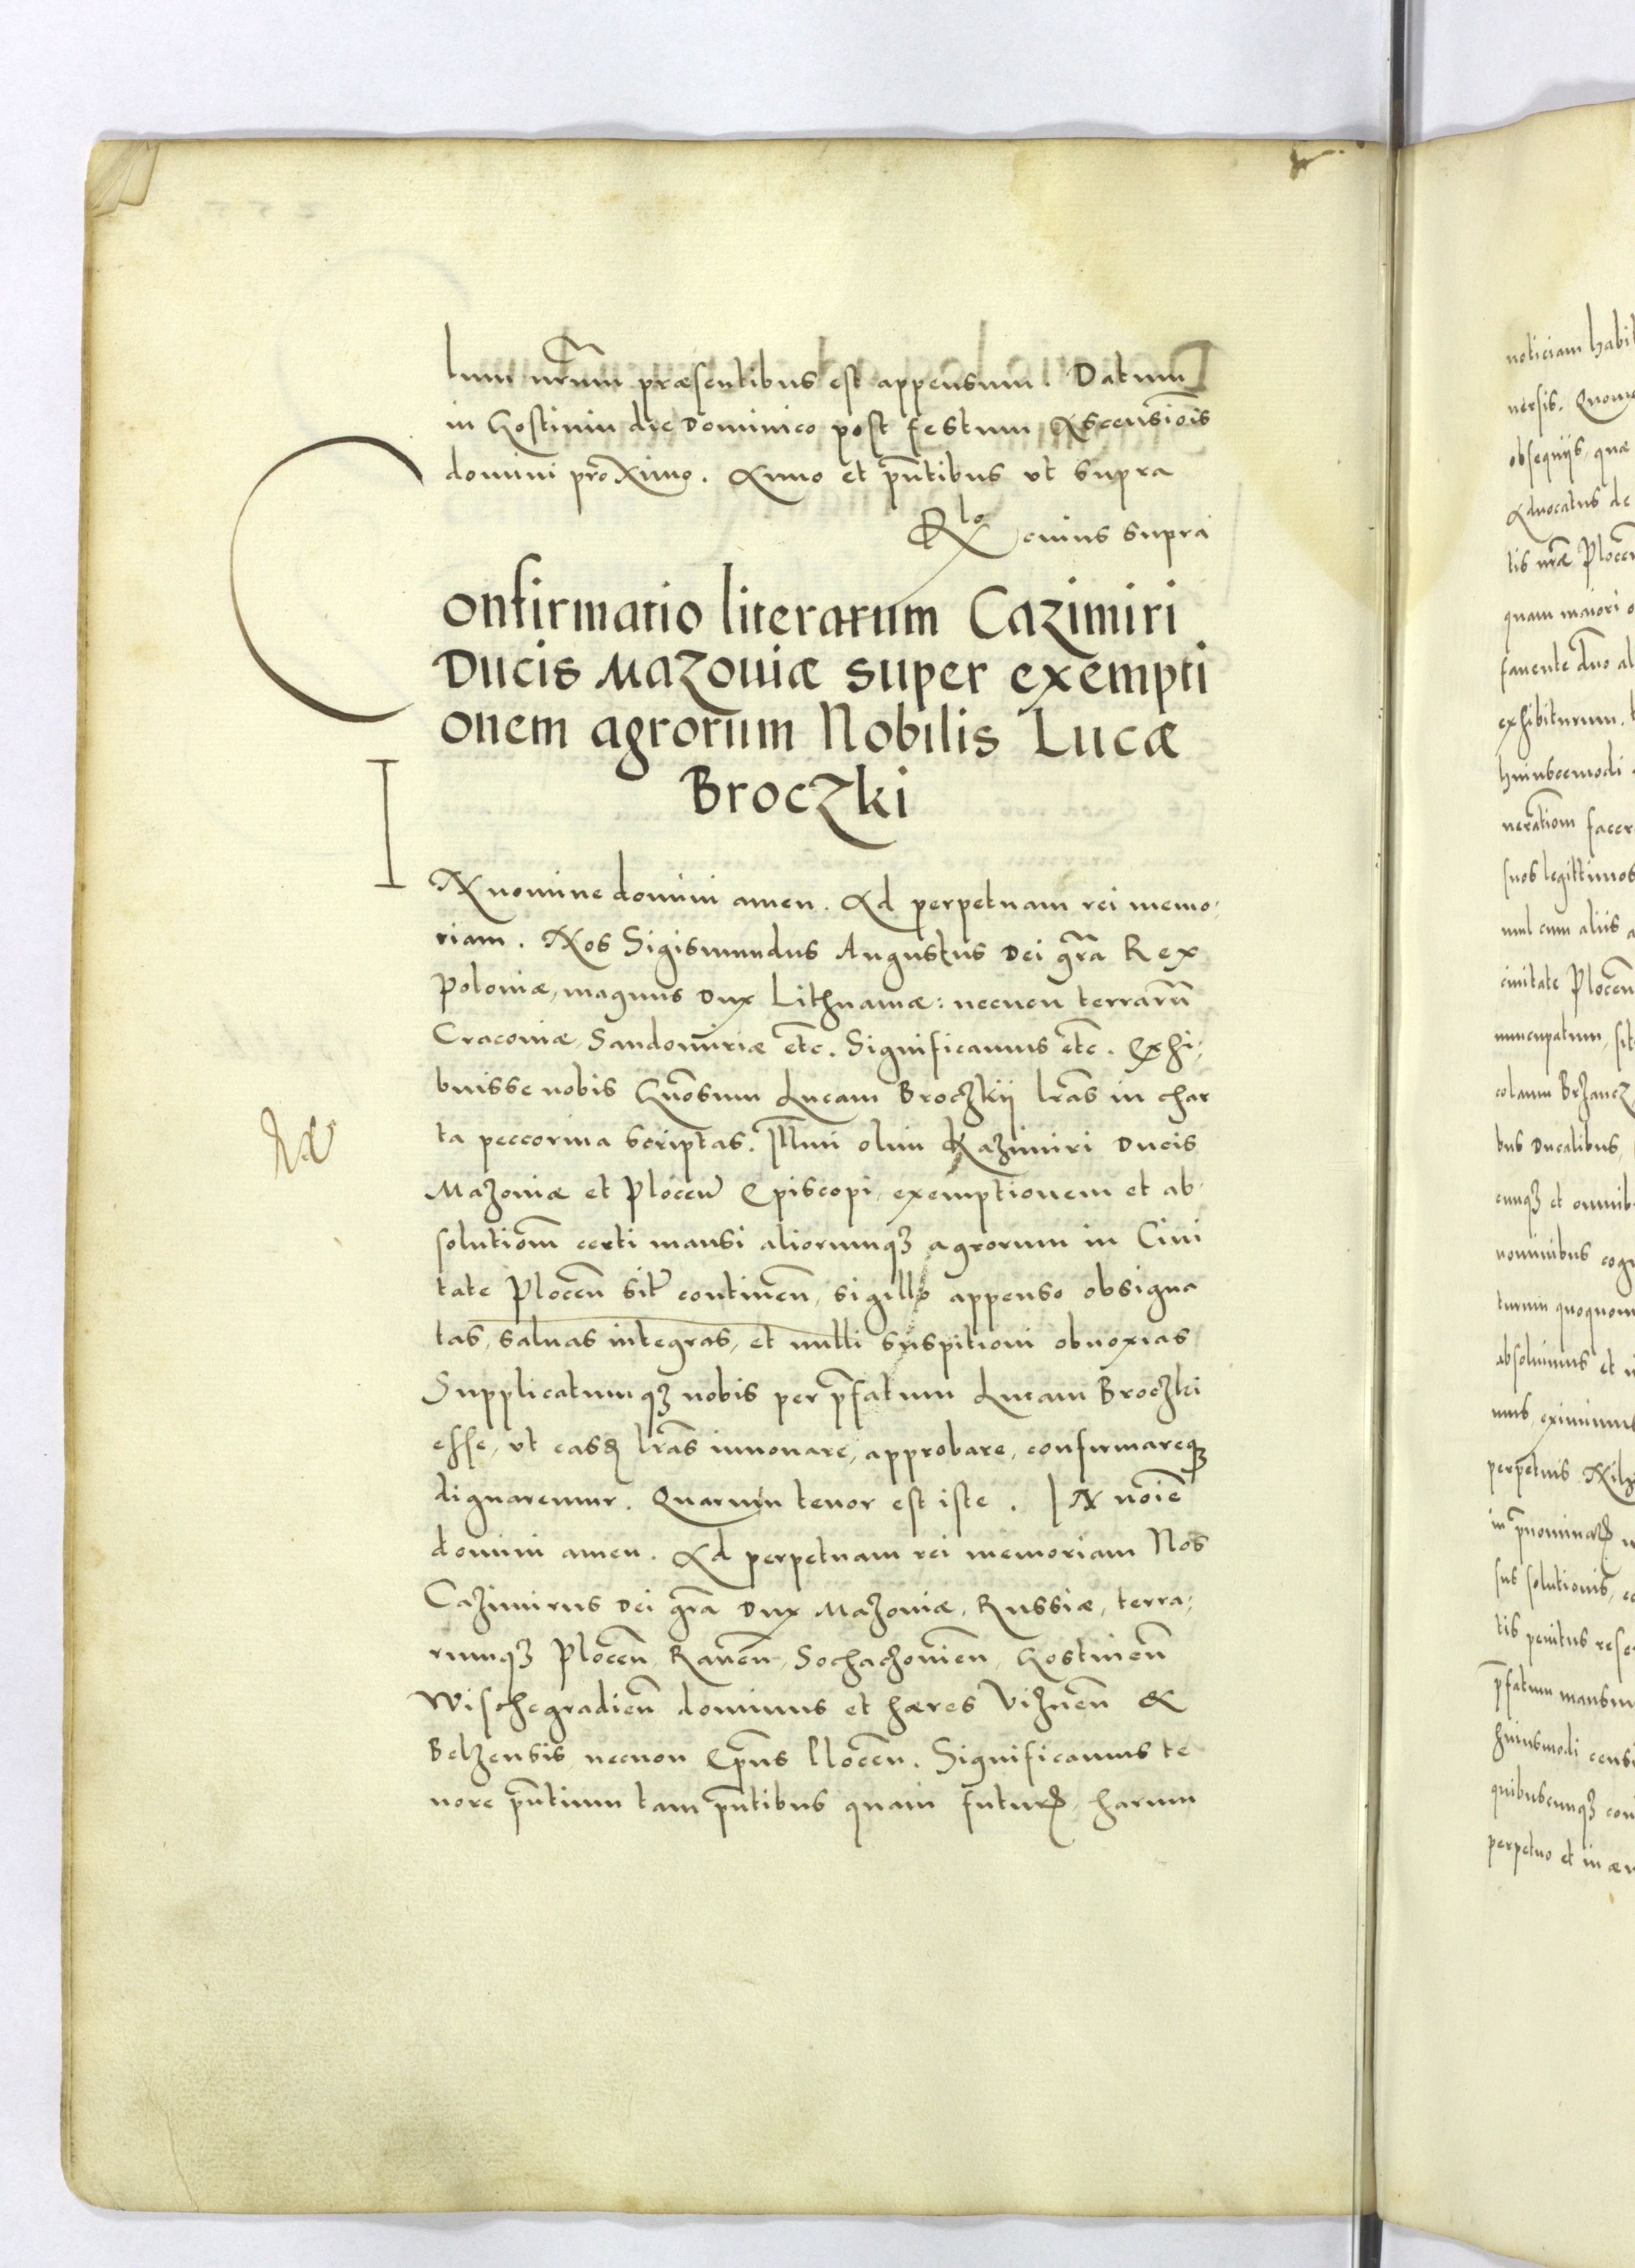 lum nr̃um præsentibus est appensum. Datum
in Gostinin die Dominico post festum Ascensiõis
domini proximo. Anno et pñtibus vt supra
Rlo cuius supra
Confirmatio literarum Cazimiri
Ducis Mazouiæ super exempti
onem agrorum Nobilis Lucæ
Broczki
IN nomine domini amen. Ad perpetuam rei memo,
riam. Nos Sigismundus Augustus Dei gr̃a Rex
Poloniæ, magnus Dux Lithuaniæ: necnon terrarũ
Cracouiæ, Sandomiriæ etc̃. Significamus etc̃. Exhi,
buisse nobis Gñosum Lucam Broczkij lr̃as in char
ta peccorina scriptas. Illmi olim Kazimiri Ducis
Mazouiæ et Plocen̄ Episcopi, exemptionem et ab,
solutiom̃ certi mansi aliorumqȝ agrorum in Ciui
tate Plocen̄ sit̃ continen̄, sigillo appenso obsigna
tas, saluas integras, et nulli suspitioni obnoxias
Supplicatumqȝ nobis per p̃fatum Lucam Broczki
esse, vt easd lr̃as innouare, approbare, confirmareqȝ
dignaremur. Quarum tenor est iste. IN noĩe
domini amen. Ad perpetuam rei memoriam Nos
Cazimirus Dei gr̃a Dux Mazouiæ, Russiæ, terra,
rumqȝ Plocen̄, Rauen̄, Sochaczouien̄, Gostinen̄
Wischegradien̄ dominus et hæres Viznen̄ &
Belzensis, necnon Ep̃us Plocen̄. Significamus te
nore pñtium tam pñtibus quam futur, harum
noticiam habit
uersis. Quomo
obsequijs, quæ
Aduocatus de
tis nr̃æ Plocen̄
quam maiori o
fauente dño al
exhibiturum, t
huiuscemodi
neratiom̃ facer
suos legittimos
mul cum aliis a
ciuitate Plocen̄
nuncupatum, sit
colanu Brzancz
bus Ducalibus,
cunqȝ et omnib
nominibus cogn
turum quoquom
absoluimus et
mus, eximimus
perpetuis. Nih
in p̃nominat
sus solutionis, c
tis penitus rese
p̃fatum mansu
huiusmodi censi
quibuscunqȝ con
perpetuo et in æu